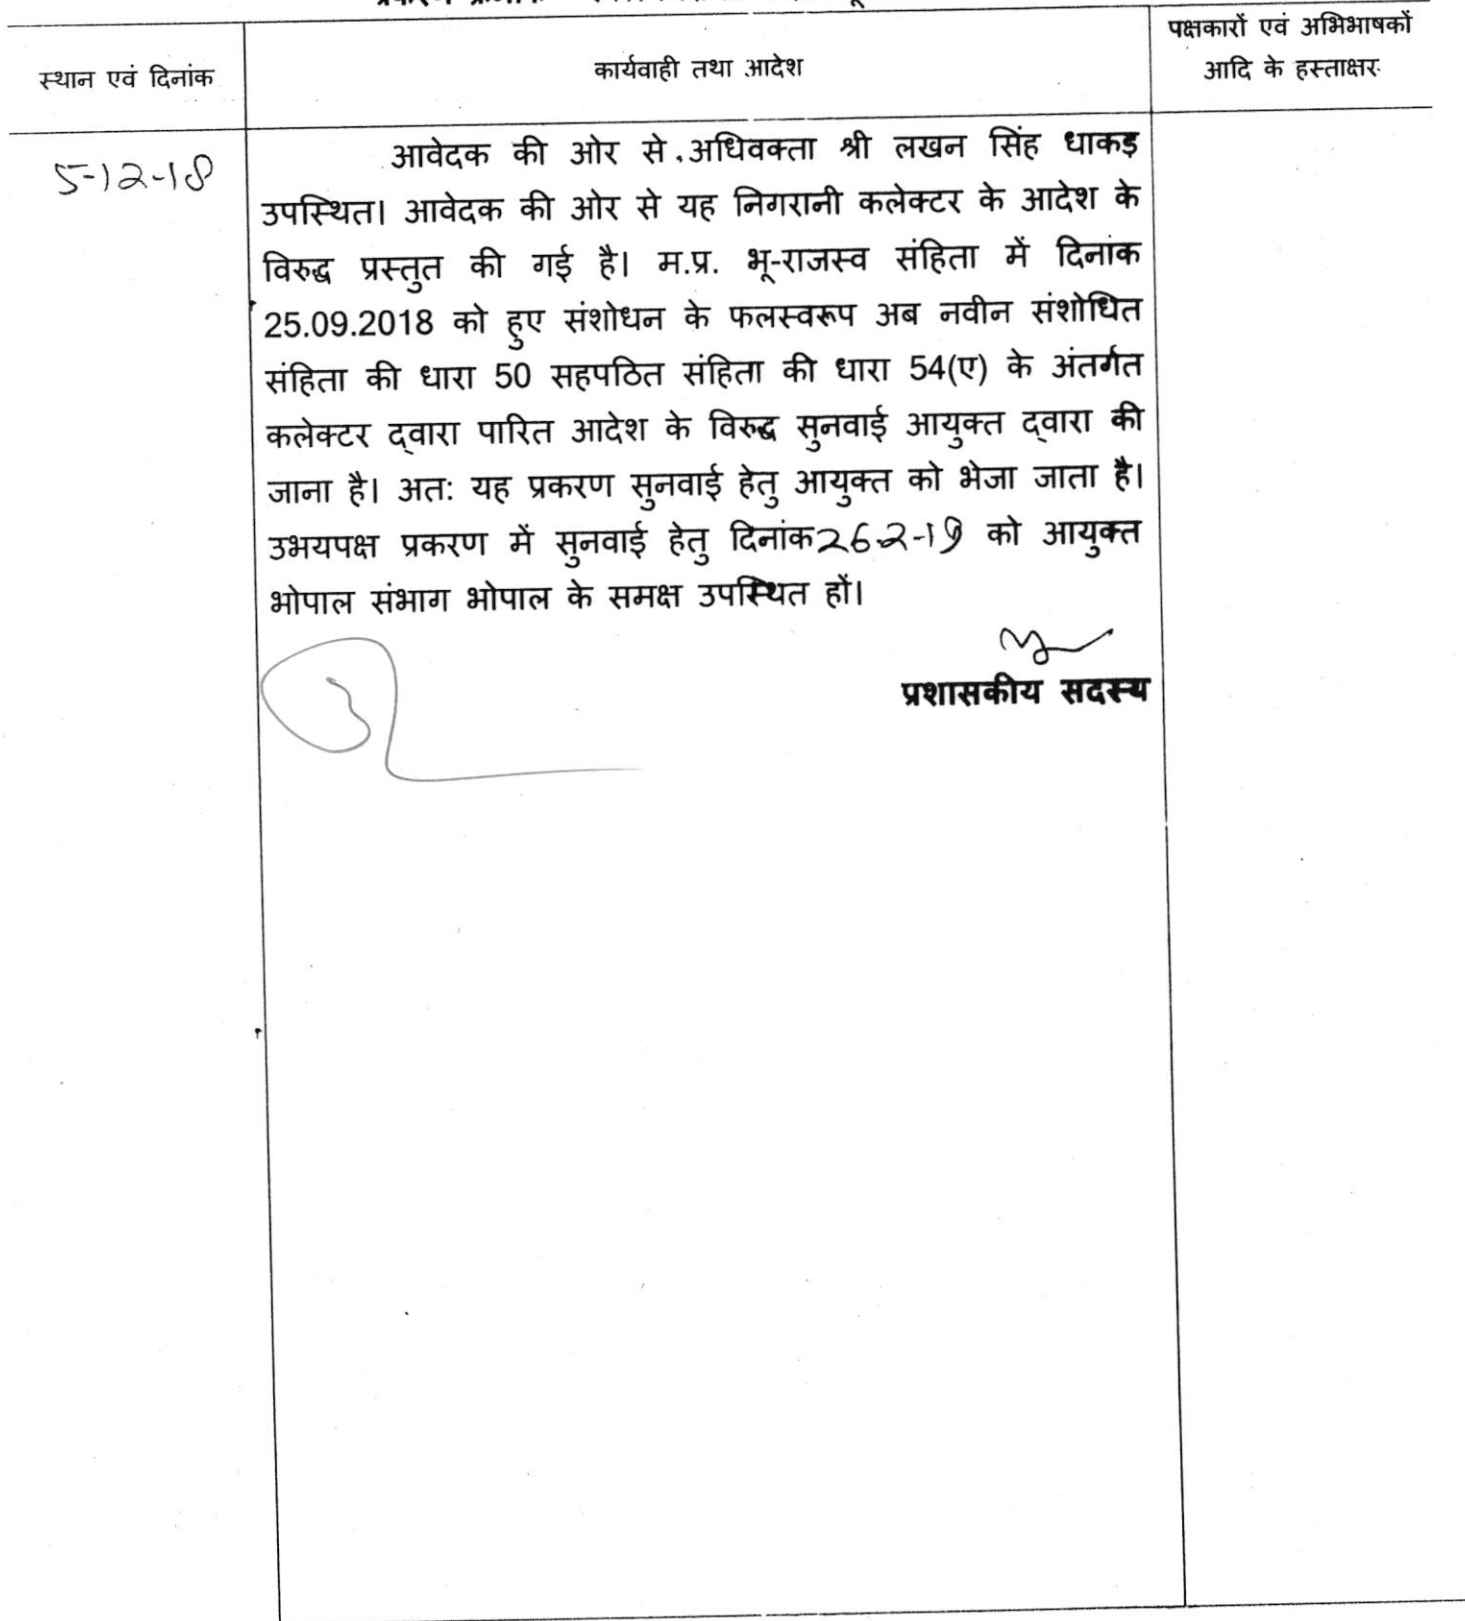 पक्षकारों एवं अभिभाषकों
स्थान एवं दिनांक कार्यवाही तथा आदेश आदि के हस्ताक्षर
5-12-18
आवेदक की ओर से अधिवक्ता श्री लखन सिंह धाकड़
उपस्थित। आवेदक की ओर से यह निगरानी कलेक्टर के आदेश के
विरुद्ध प्रस्तुत की गई है। म.प्र. भू-राजस्व संहिता में दिनांक
25.09.2018 को हुए संशोधन के फलस्वरूप अब नवीन संशोधित
संहिता की धारा 50 सहपठित संहिता की धारा 54(ए) के अंतर्गत
कलेक्टर द्वारा पारित आदेश के विरुद्ध सुनवाई आयुक्त द्वारा की
जाना है। अतः यह प्रकरण सुनवाई हेतु आयुक्त को भेजा जाता है।
उभयपक्ष प्रकरण में सुनवाई हेतु दिनांक 26-2-19 को आयुक्त
भोपाल संभाग भोपाल के समक्ष उपस्थित हों।
प्रशासकीय सदस्य